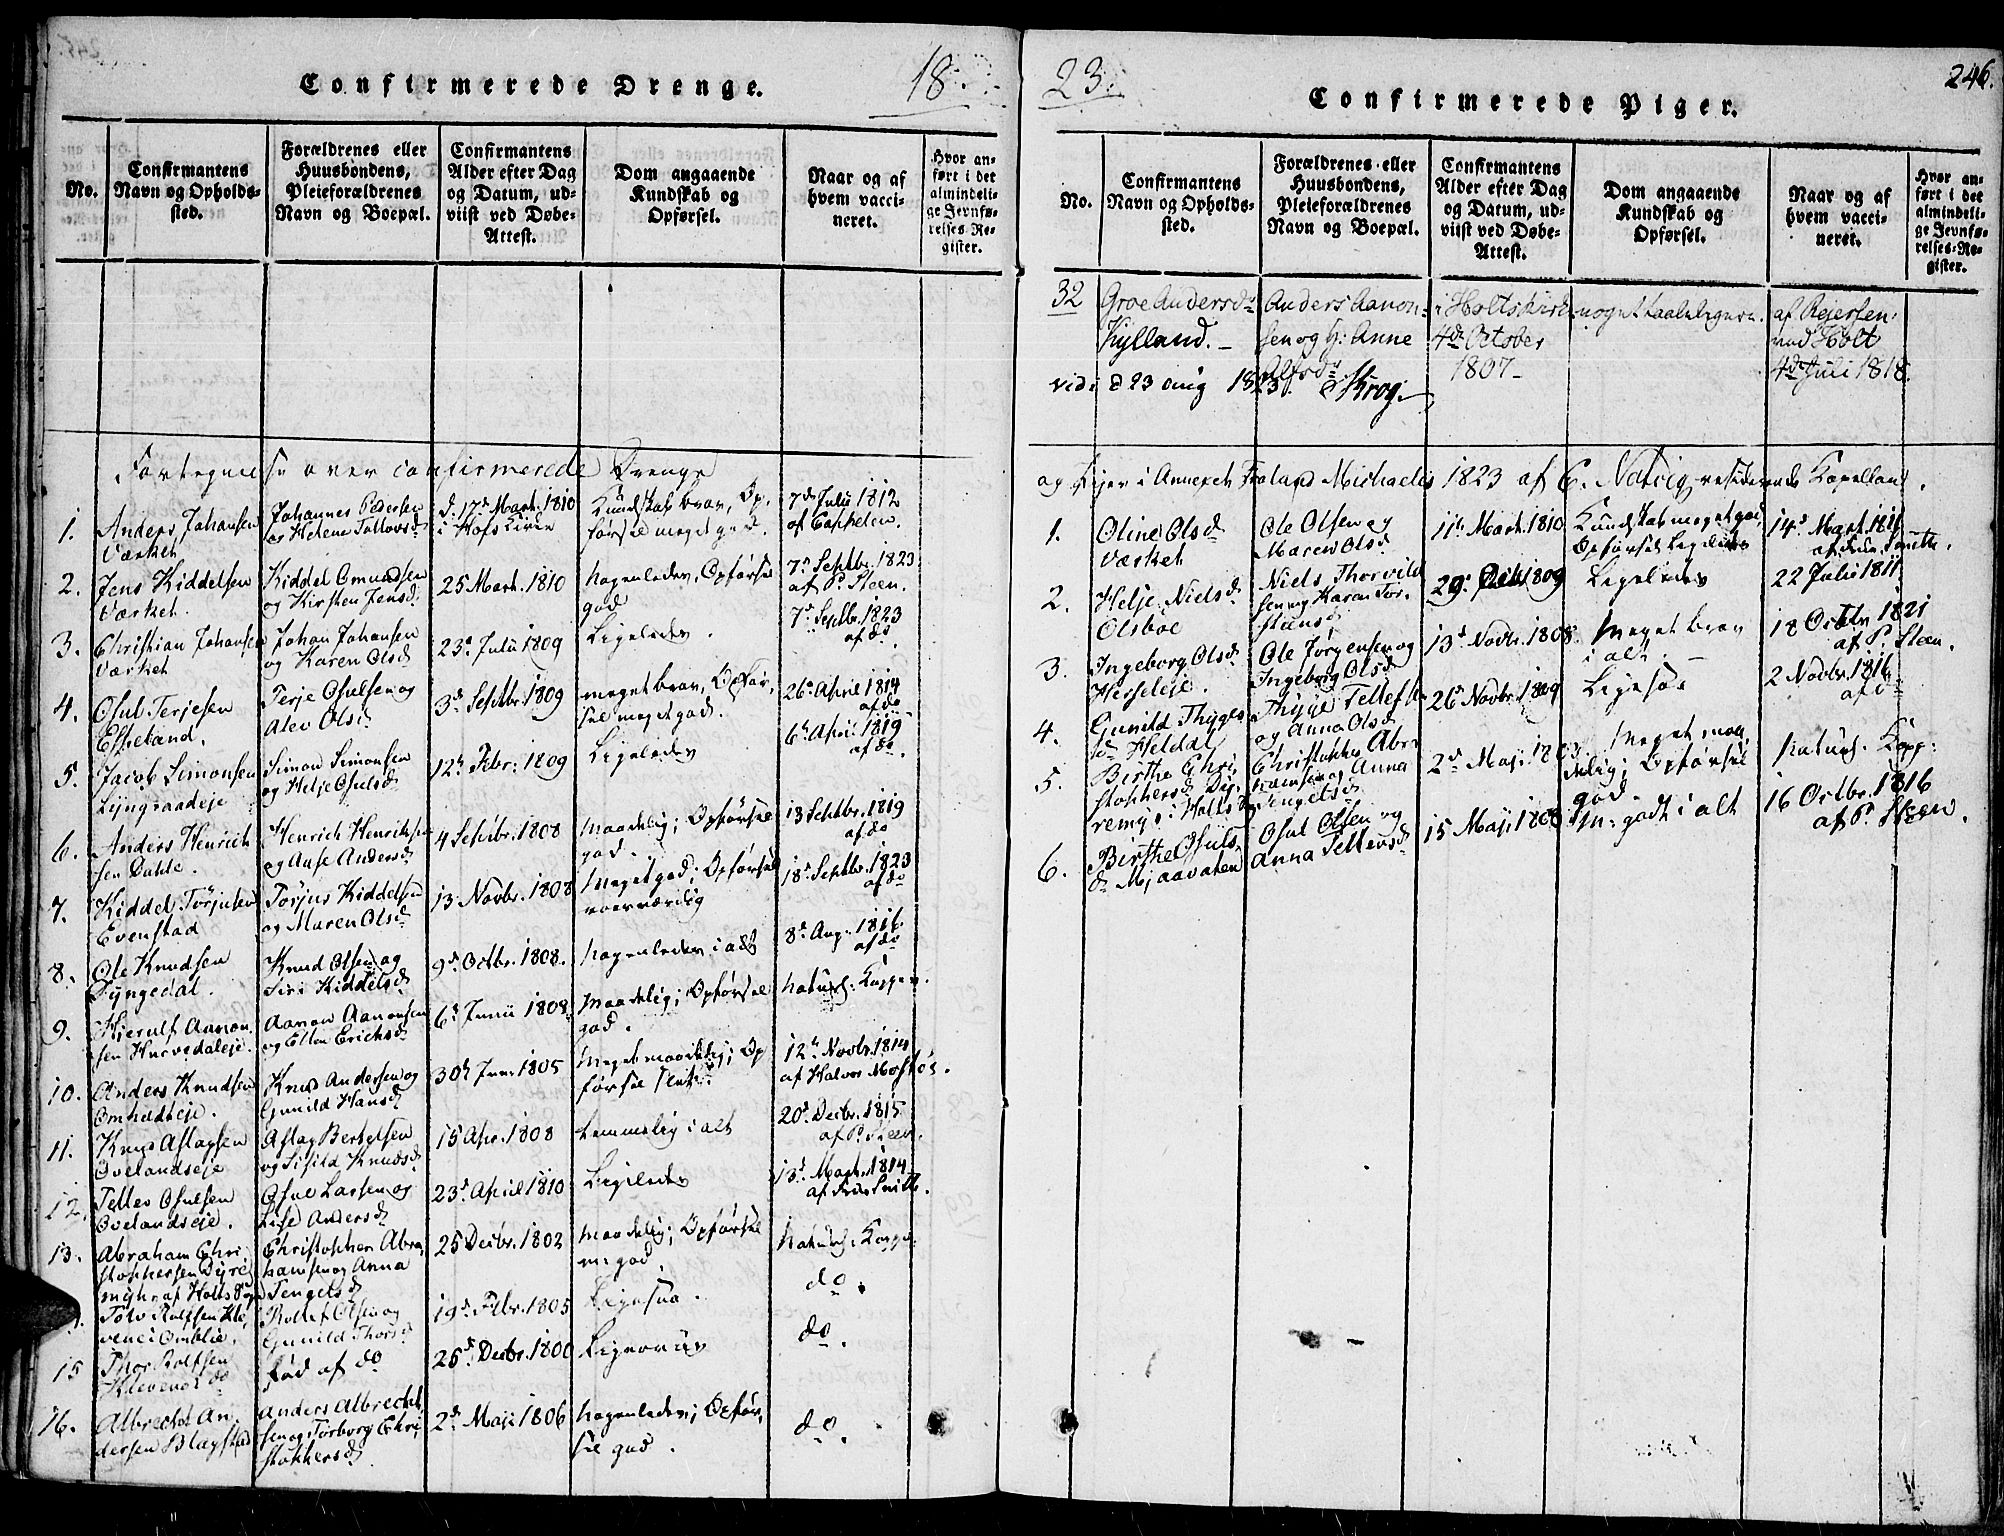 Confirmerede Drenge.
18
No.
Confirmantens
Navn og Opholds-
sted.
Forældrenes eller
Huusbondens,
Pleieforældrenes
Navn og Boepæl.
Confirmantens
Alder efter Dag
og Datum, ud-
viist ved Døbe-
Attest.
Dom angaaende
Kundskab og
Opførsel.
Naar og af
hvem vacci-
neret.
Hvor an-
ført i det
almindeli-
ge Jevnfø-
relses-Re-
gister.
Fortegnelse over confirmerede Drenge
1.
Anders Johansen
Værket
Johannes Pedersen
og Helene
d. 17d Mart. 1810
i Kundskab brav, Op-
førsel meget god.
7d Julii 1812
af Cappelen.
2.
Jens Kiddelsen
Værket.
Kiddel Omundsen
og Kirsten Jensd
25 Mart. 1810
Opførsel
god
7d Septbr. 1823
af P. Steen.
3.
Christian Johansen
Værket
Johan Johansen
og Karen Olsd
23d Julii 1809
Ligeledes.
7d Septbr. 1823
af do
4.
Osul Terjesen
Espeland.
Terje Osulsen og
Alev Olsd
3d Septbr. 1809
meget brav, Opfør-
sel meget god.
26d April 1814
af do
5.
Jacob Simonsen
Lyngraadeje
Simon Simonsen
og Helje Osulsd
12d Febr: 1809
Ligeledes
6d April 1819
af do.
6.
Anders Henrich
sen Dahle.
Henrich Henrichsen
og Anse Andersd
4 Septbr. 1808
Maadelig; Opførsel
god.
13 Septbr. 1819
af do
7.
Kiddel Torjusen
Evenstad
Torjus Kiddelsen
og Maren Olsd
13 Novbr. 1808
Meget god; Opførsel
roesværdig
18d Septbr. 1823
af do
8.
Ole Knudsen
Lyngedal.
Knud Olsen og
Siri Kiddelsd
9d Octbr. 1808.
i alt
8d Aug. 1816
af do
9.
Hierulf Aanon
sen Hurvedaleje.
Aanon Aanonsen
og Ellen Erichsd
6d Junii 1808
Maadelig; Opførsel
god.
Naturl. Kopper.
10.
Anders Knudsen
Omholteje.
Knud Andersen og
Gunild Hansd
30d Juni 1805
Meget maadelig; Op
førsel slet
12d Novbr. 1814
af Halvor
11.
Knud Aslagsen
Ovelandseje
Aslag Bertelsen
og Sisild Knudsd
15 Apr. 1808
Temmelig i alt
20d Decbr. 1815
af P. Steen.
12.
Tellev Osulsen
Ovelandseje.
Osul Larsen og
Lise Andersd
23d April 1810
Ligeledes
13d Mart. 1814
af Smith.
13.
Abraham Chri
stophersen Dyre
myhr af Holts Sogn
Christopher Abra
hamsen og Anna
Tengelsd
25 Decbr. 1802
Maadelig; Opførsel
m: god.
Naturl. Kopp:
do.
Tolv Rolfsen Kle
vene i Omblie.
Rollef Olsen og
Gunild Thorsd
19d Febr. 1805
Ligesaa.
do.
15
Thor Rolfsen
Klevene do
Sød af do
25d Decbr. 1800
16.
Albrecht An
dersen Blagstad
Anders Albrecht
sen og Torborg Chri
stophersd.
2d Maji 1806
Opfør-
sel god.
do.
23.
Confirmerede Piger.
246.
No.
Confirmantens
Navn og Opholds-
sted.
Forældrenes eller
Huusbondens,
Pleieforældrenes
Navn og Boepæl.
Confirmantens
Alder efter Dag
og Datum, ud-
viist ved Døbe-
Attest.
Dom angaaende
Kundskab og
Opførsel.
Naar og af
hvem vacci-
neret.
Hvor an-
ført i det
almindeli-
ge Jevnfø-
relses-Re-
gister.
32
Groe Andersdr
Kylland.
Anders Aanon-
sen og H: Anne
Alfsdr
i Holts Kirke
4de October
1807
noget taaleligere.
af Reiersen
ved Holt
4de Juli 1818.
vidi d 23 aug 1823. Krog.
og Piger i Annexet Froland Michaelis 1823 af C. Natvig, residerende Kapellan.
1.
Oline Olsd
Værket
Ole Olsen og
Maren Olsd
11d Mart. 1810
Kundskab meget god,
Opførsel ligeledes
14d Mart. 1811
af Smith.
2.
Helje Nielsd
Olsboe
Niels Thorvild
sen og Karen Tor-
29d 1809
Ligeledes
22 Julii 1811
3.
Ingeborg Olsd
Herseleje.
Ole Jørgensen og
Ingeborg Olsd
13d Novbr. 1808
Meget brav
i alt.
18 Octbr 1821
af P. Steen.
4.
Gunild Thyges
d Heldal
Thyge Tellefsen
og Anna Olsd
26d Novbr. 1809
Ligesaa
2 Novbr. 1816
af do
5.
Birthe Chri
stophersd Dy-
remyr i Holts S
Christopher Abra
hamsen og Anna
Tengelsd
2d Maji 1803
Meget maa
delig; Opførsel
god.
Naturl. Kopp:
6.
Birthe Osuls
d Mjaavaten
Osul Olsen og
Anna Tellevsd
15 Maji 1808
M: godt i alt
16 Octbr. 1816
af P. Steen.